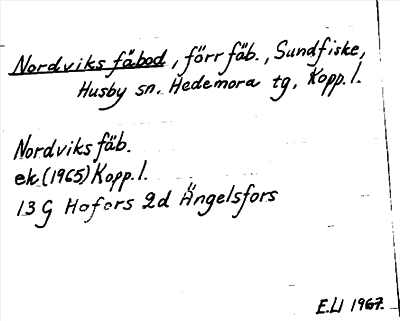 Nordviks fäbod, förr fäb., Sundfiske,
Husby sn. Hedemora tg, Kopp. l.
Nordviks fäb.
ek. (1965) Kopp. l.
13 G Hofors 2d Ängelsfors
E.U 1967.